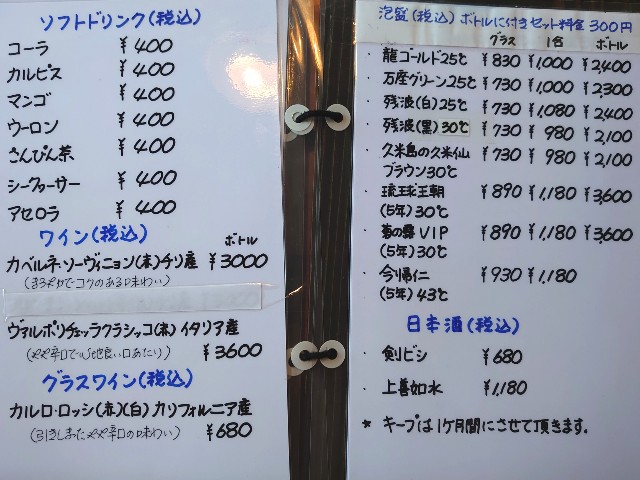 ソフトドリンク(税込)
コーラ ¥400
カルピス ¥400
マンゴ ¥400
ウーロン ¥400
さんぴん茶 ¥400
シークァーサー ¥400
アセロラ ¥400
ワイン(税込) ボトル
カベルネ・ソーヴィニヨン(赤)チリ産 ¥3000
(まろやかでコクのある味わい)
ヴァルポリチェッラクラシッコ(赤)イタリア産
(やや辛口で心地良い口あたり) ¥3600
グラスワイン(税込)
カルロ・ロッシ(赤)(白)カリフォルニア産
(引きしまったやや辛口の味わい) ¥680
泡盛(税込)ボトルに付きセット料金300円
グラス 1合 ボトル
・龍ゴールド25℃ ¥830 ¥1,000 ¥2,400
・万座グリーン25℃ ¥730 ¥1,000 ¥2,300
・残波(白)25℃ ¥730 ¥1,080 ¥2,400
・残波(黒)30℃ ¥730 ¥980 ¥2,100
・久米島の久米仙 ¥730 ¥980 ¥2,100
ブラウン30℃
・琉球王朝 ¥890 ¥1,180 ¥3,600
(5年)30℃
・菊の露VIP ¥890 ¥1,180 ¥3,600
(5年)30℃
・今帰仁 ¥930 ¥1,180
(5年)43℃
日本酒(税込)
・剣ビシ ¥680
・上善如水 ¥1,180
* キープは1ケ月間にさせて頂きます.